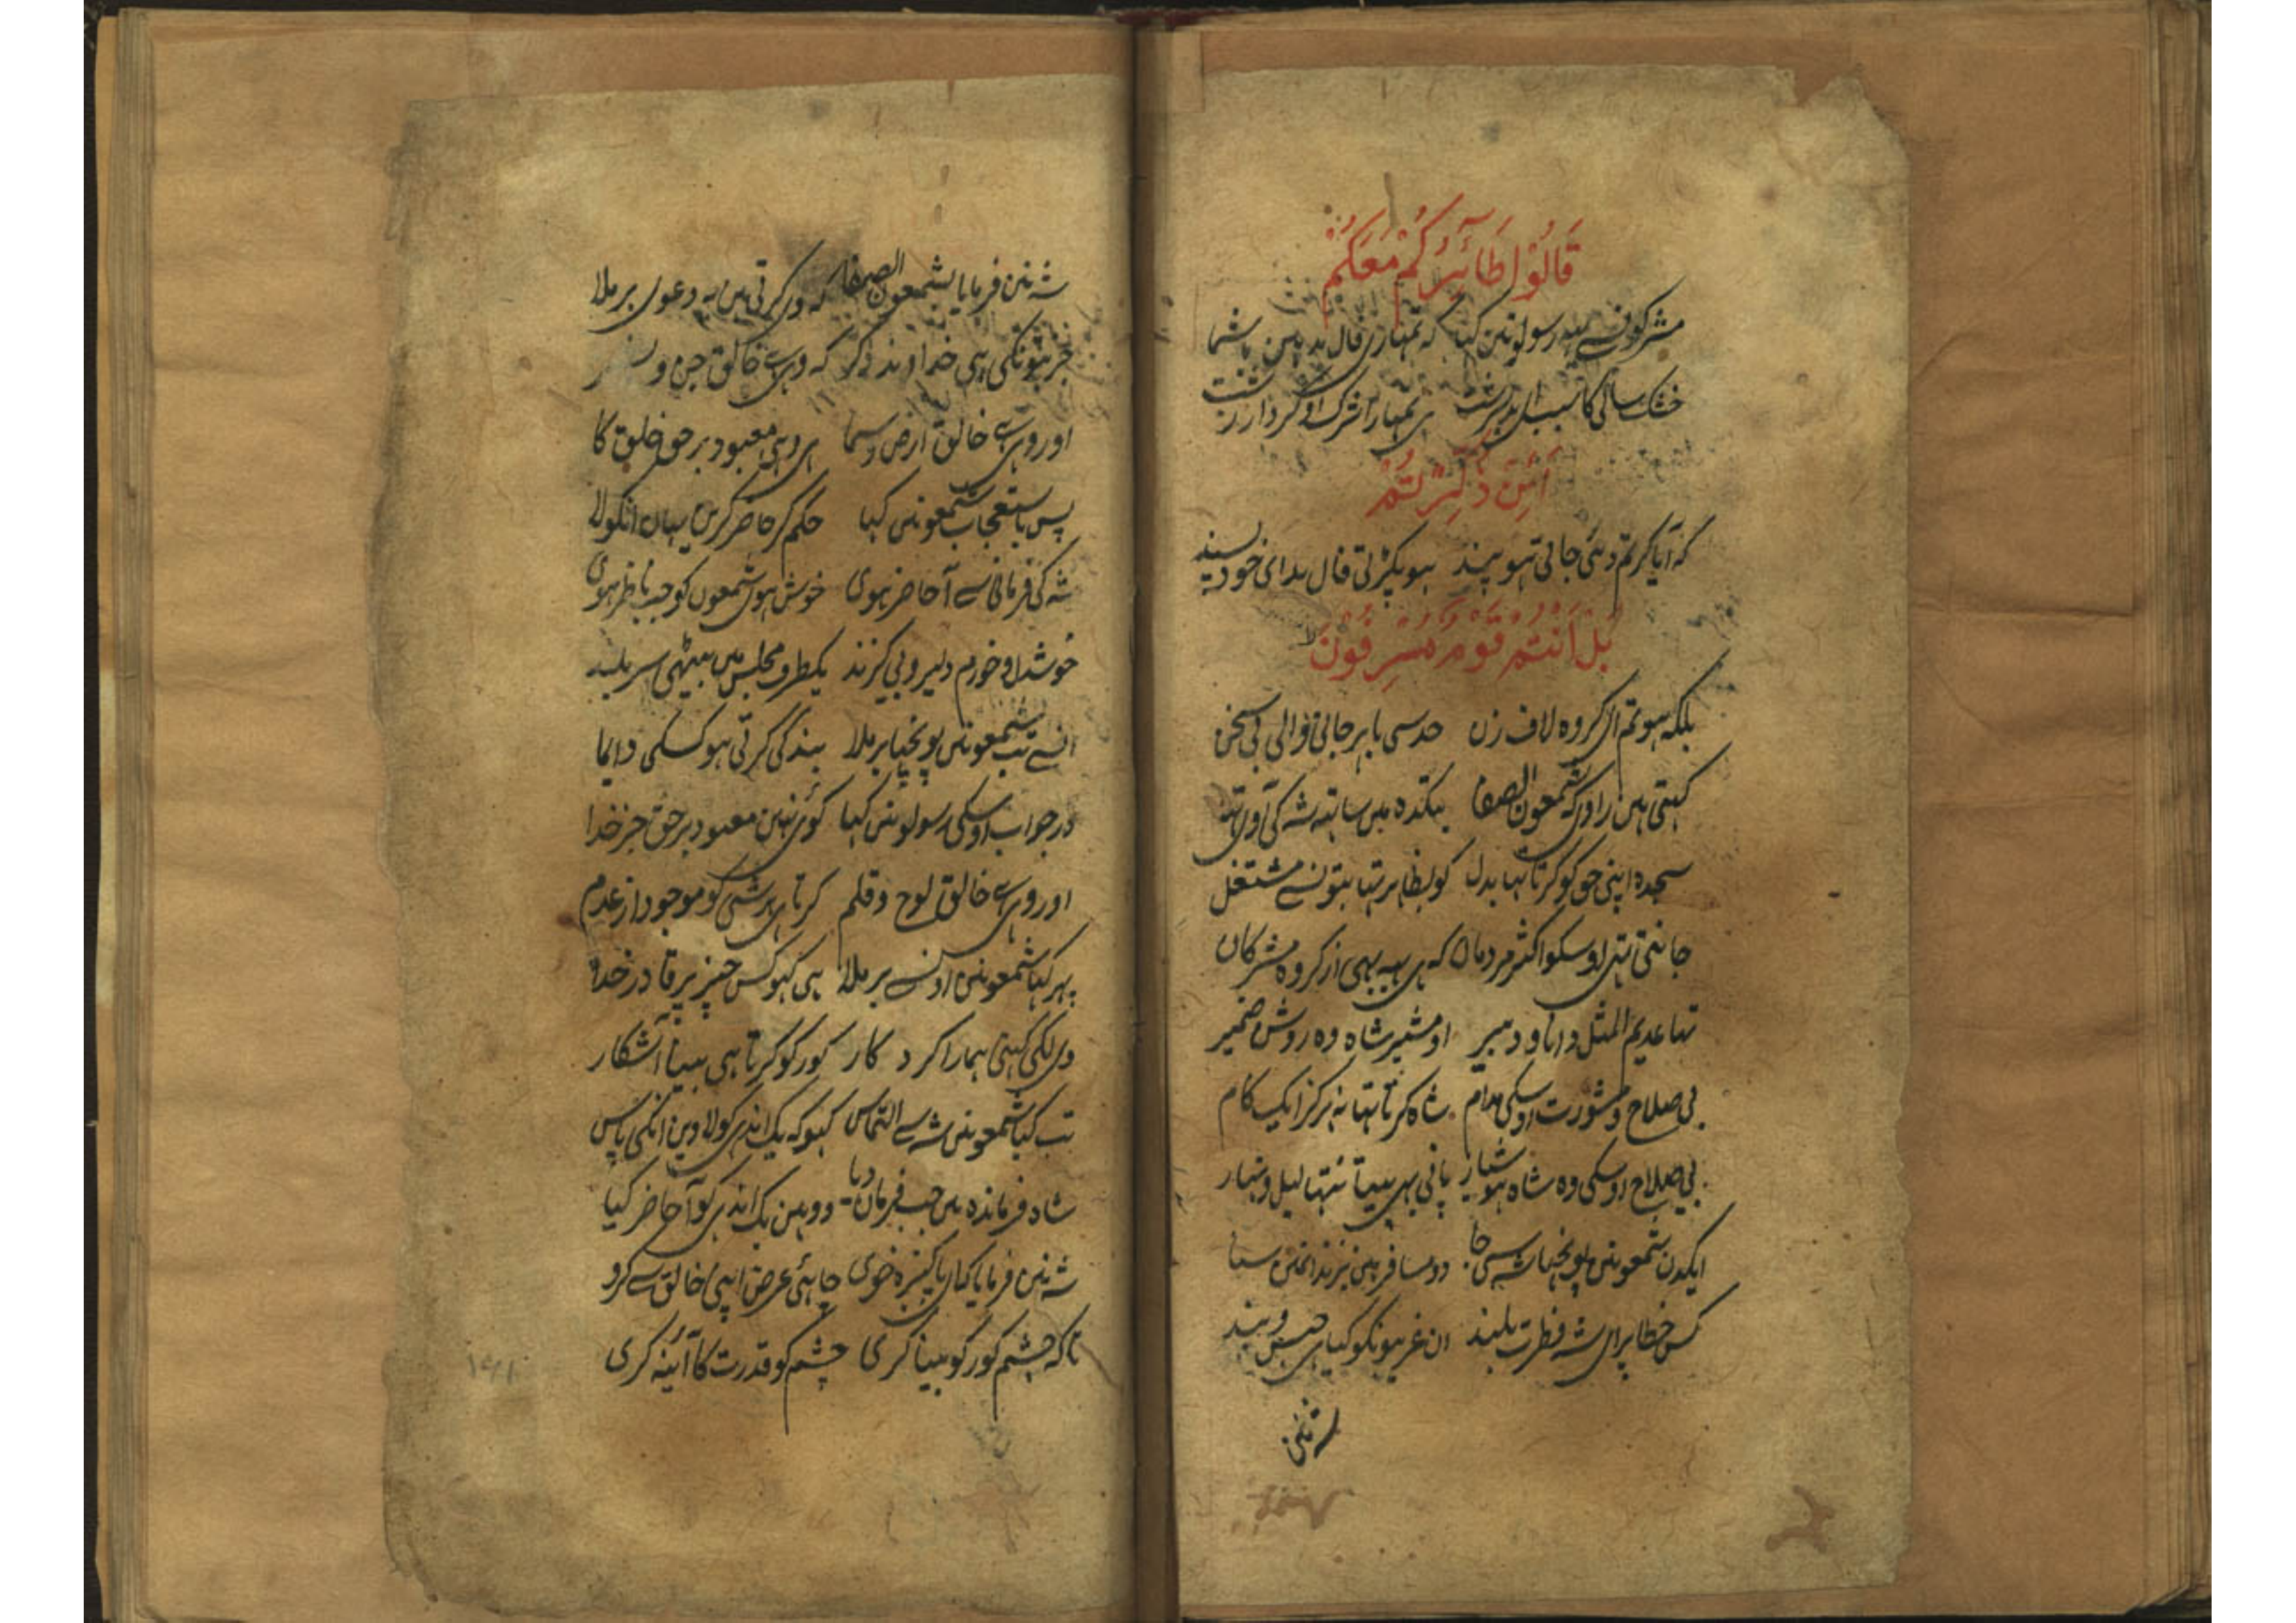 قَالُوْا طَآئِرُكُمْ مَعَكُمْ
مشرکونسے یہہ رسولونین کہا کہ تمہاری فال بد ہیں باشما
خشک سالی کا سبب ای بد سرشت ہی تمہارا شرک اور کردار زشت
اَئِنْ ذُكِّرْتُمْ
کہ آیا گر تم دئی جاتی ہو پند ہو پکڑتی فال بد ای خود پسند
بَلْ اَنْتُمْ قَوْمٌ مُسْرِفُوْنَ
بلکہ ہو تم ای گروہ لاف زن حد سی باہر جانی والی بی سخن
کہتی ہیں راوی کہ شمعون الصفا بتکدہ میں ساتہہ شہ کی آوی تہا
سجدہ اپنی حق کو کرتا تہا بدل گو بظاہر تہا بتونسے مشتغل
جانتی تہی اوسکو اکثر مردمان کہ ہی یہہ بہی از گروہ مشرکان
تہا عدیم المثل دانا و دبیر او مشیر شاہ وہ روشن ضمیر
بی صلاح و مشورت اوسکی مدام شاہ کرتا تہا نہ ہرگز ایک کام
بی صلاح اوسکی وہ شاہ ہوشیار پانی بہی پیتا نتہا لیل و نہار
ایکدن شمعونین پونچہا شہ سی جا دو مسافر ہیں بزندانین سنا
کس خطا پر ای شہ فطرت بلند ان غریبونکو کیا ہی حبس و بند
شہ نین
شہ نین فرمایا بشمعون الصفا کہ وی کرتی ہیں یہ دعوی برملا
جز بتونکی ہی خداوند دگر کہ وہی ہے خالق جن و
اور وہی ہے خالق ارض و سما ہی وہی معبود برحق خلق کا
پس باستعجاب شمعونین کہا حکم کر حاضر کرین یہان انکو لا
شہ کی فرمانی سے آ حاضر ہوی خوش ہوی شمعون کو جب ناظر ہوی
خوشدل و خورم دلیر و بی گزند یکطرف مجلس میں بیٹہی سر بلند
انسے تب شمعونین پونچہا برملا بندگی کرتی ہو کسکی دایما
در جواب اوسکی رسولونین کہا کوئی نہین معبود برحق جز خدا
اور وہی ہے خالق لوح و قلم کرتا ہی ہر شی کو موجود از عدم
پہر کہا شمعونین اونسے برملا ہی کہو کس چیز پر قادر خدا
وی لگی کہنی ہمارا کردکار کور کو کرتا ہی بینا آشکار
تب کیا شمعونین شہ سے التماس کہو کہ یک اندہی کو لاوین انکی پاس
شاہ فرماندہ نین جب فرمان دیا وو وہین یک اندہی کو آ حاضر کیا
شہ نین فرمایا کہ ای پاکیزہ خوی چاہئی عرض اپنی خالق سے کرو
تا کہ چشم کور کو بینا کری چشم کو قدرت کا آئینہ کری
۱۶۱